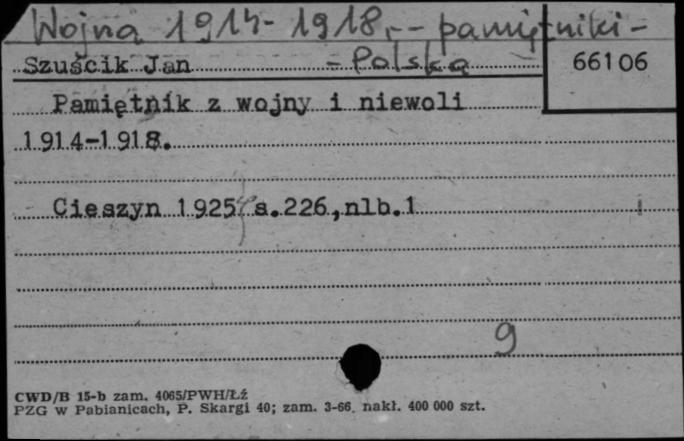 Wojna 1914-1918,-- pamiętniki-
Szuścik Jan - Polska 66106
Pamiętnik z wojny i niewoli
1914-1918.
Cieszyn 1925 s.226,nlb.1
9
CWD/B 15-b zam. 4065/PWH/Łź
PZG w Pabianicach, P. Skargi 40; zam. 3-66. nakł. 400 000 szt.